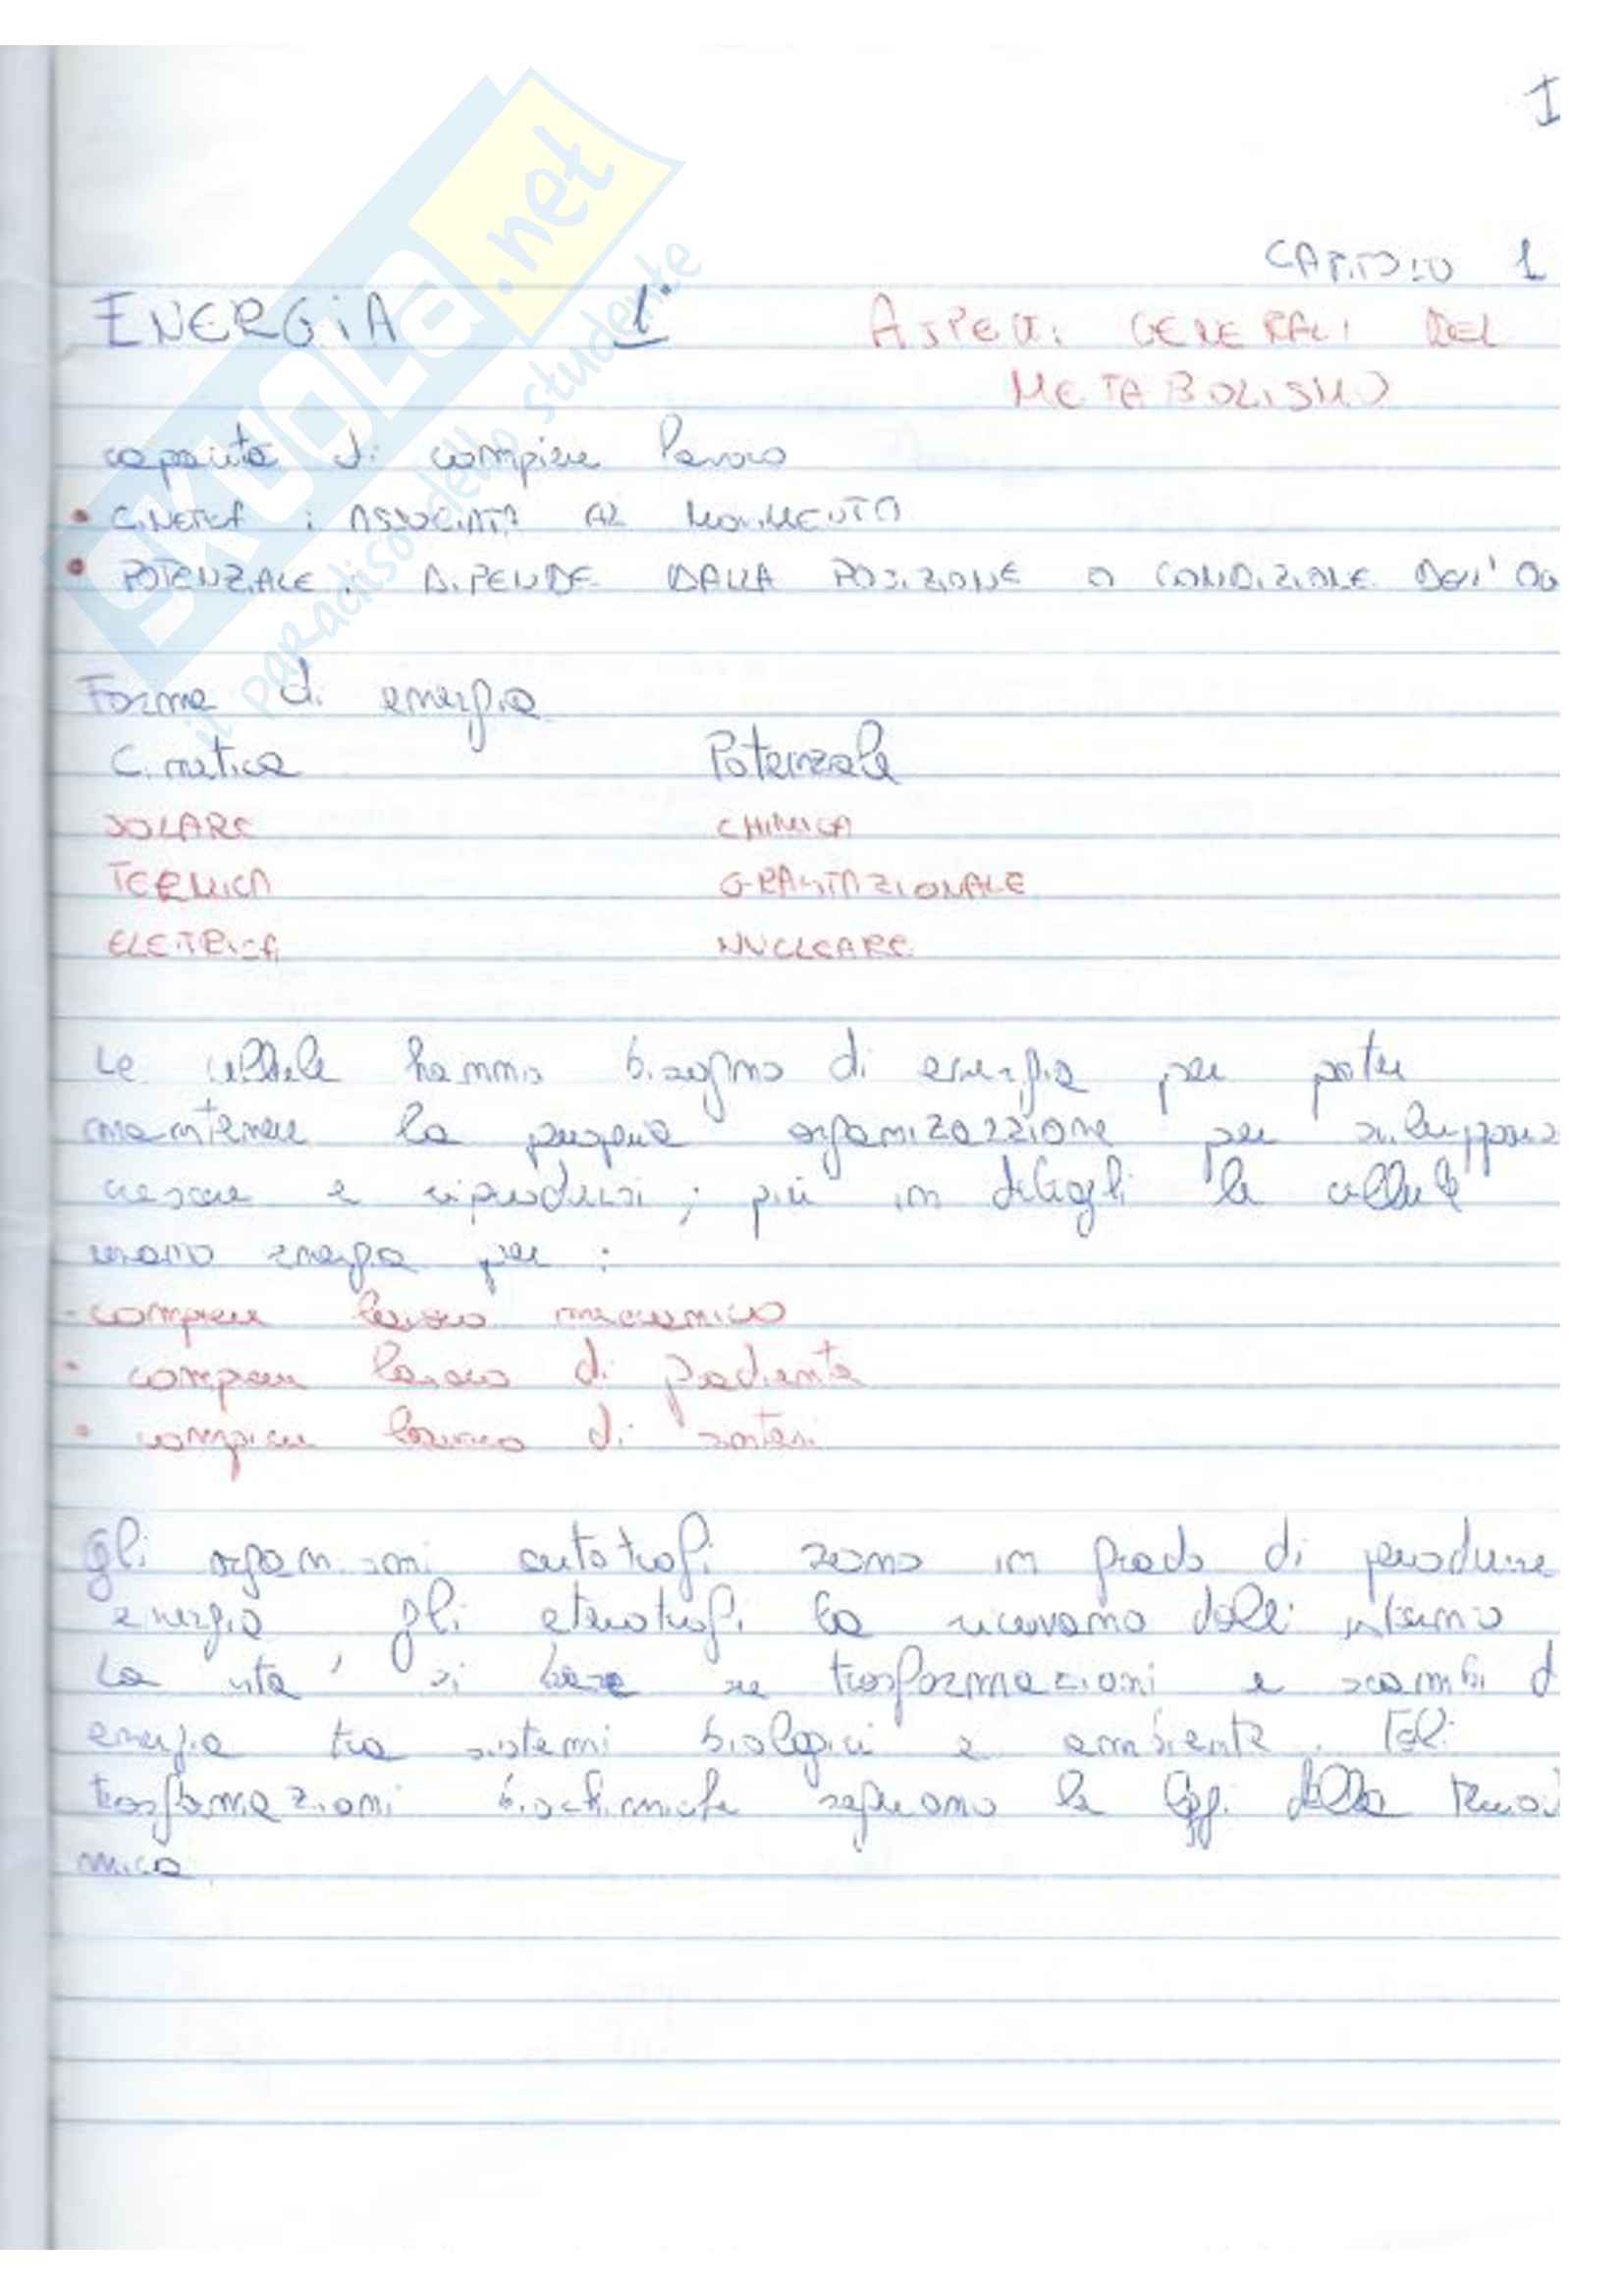 I
CAPITOLO 1
ENERGIA 1° ASPETTI GENERALI DEL
METABOLISMO
capacità di compiere lavoro
• CINETICA : ASSOCIATA AL MOVIMENTO
• POTENZIALE : DIPENDE DALLA POSIZIONE O CONDIZIONE DELL'OG
Forme di energia
Cinetica Potenziale
SOLARE CHIMICA
TERMICA GRAVITAZIONALE
ELETRICA NUCLEARE
Le cellule hanno bisogno di energia per poter
mantenere la propria organizzazione per svilupparsi
crescere e riprodursi ; più in dettagli le cellule
usano energia per :
- compiere lavoro meccanico
• compiere lavoro di gradiente
• compiere lavoro di sintesi
Gli organismi autotrofi sono in grado di produrre
energia gli eterotrofi la ricevono dall'
La vita si basa su trasformazioni e scambi d
energia tra sistemi biologici e ambiente. Tali
trasformazioni biochimiche seguono le leggi della
mica
SKUOLA.net
il paradiso dello studente